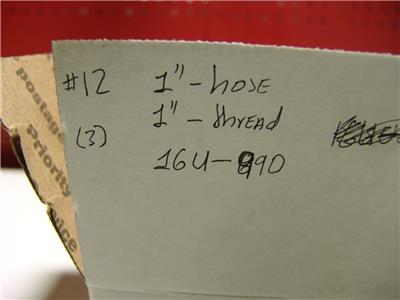 #12 1"-hose
(3) 1"-thread
16U-890
postage
priority